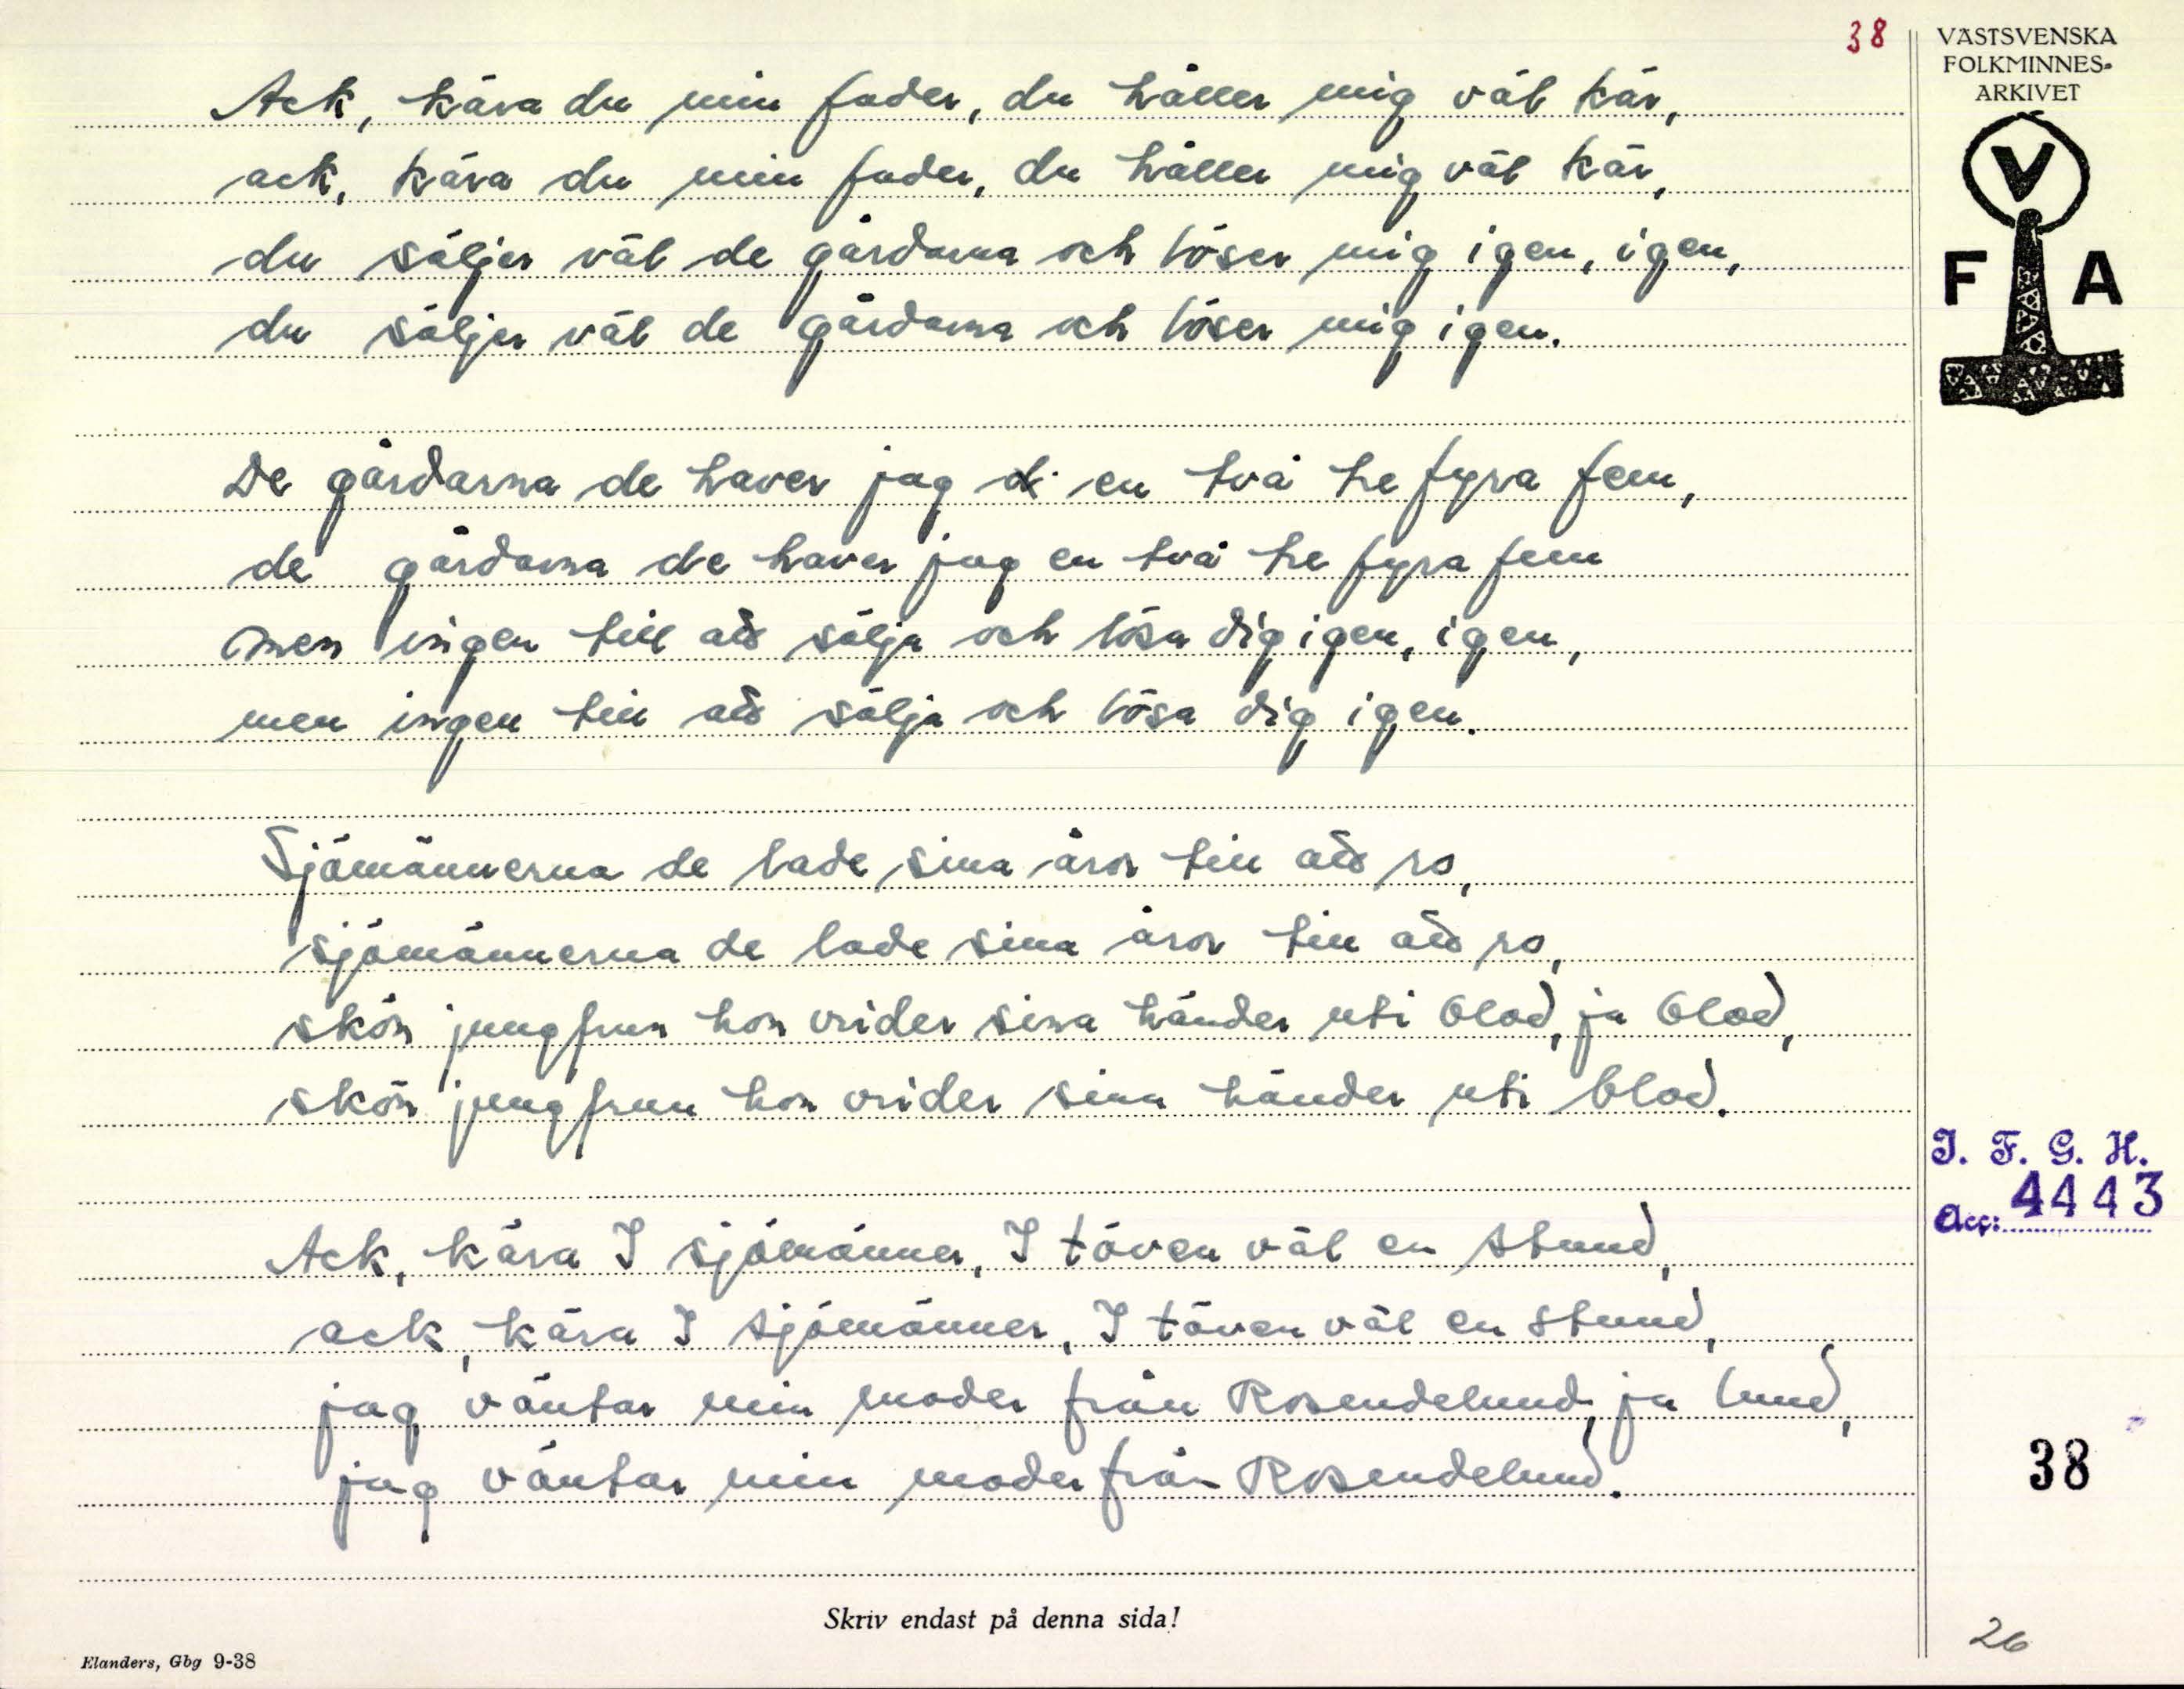 38
VÄSTSVENSKA
FOLKMINNES-
ARKIVET
V
F A
Ack, kära du min fader, du håller mig väl kär,
ack, kära du min fader, du håller mig väl kär,
du säljer väl de gårdarna och löser mig igen, igen,
du säljer väl de gårdarna och löser mig igen.
De gårdarna de haver jag en två tre fyra fem,
de gårdarna de haver jag en två tre fyra fem
men ingen till att sälja och lösa dig igen, igen,
men ingen till att sälja och lösa dig igen.
Sjömännerna de lade sina åror till att ro,
sjömännerna de lade sina åror till att ro,
skön jungfrun hon vrider sina händer uti blod, ja blod,
skön jungfrun hon vrider sina händer uti blod.
Ack, kära I sjömänner, I töven väl en stund,
ack, kära I sjömänner, I töven väl en stund,
jag väntar min moder från Rosendelund, ja lund,
jag väntar min moder från Rosendelund.
I. F. G. H.
Acc: 4443
38
26
Skriv endast på denna sida!
Elanders, Gbg 9-38